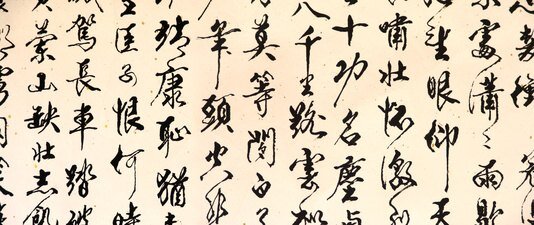 衝冠
處瀟々雨歇
望眼仰天
嘯壯懷激烈
十功名塵與
八千里路雲和
莫等閑白了
年頭空悲
靖康恥猶未
臣子恨何時
滅駕長車踏破
蘭山缺壯志飢